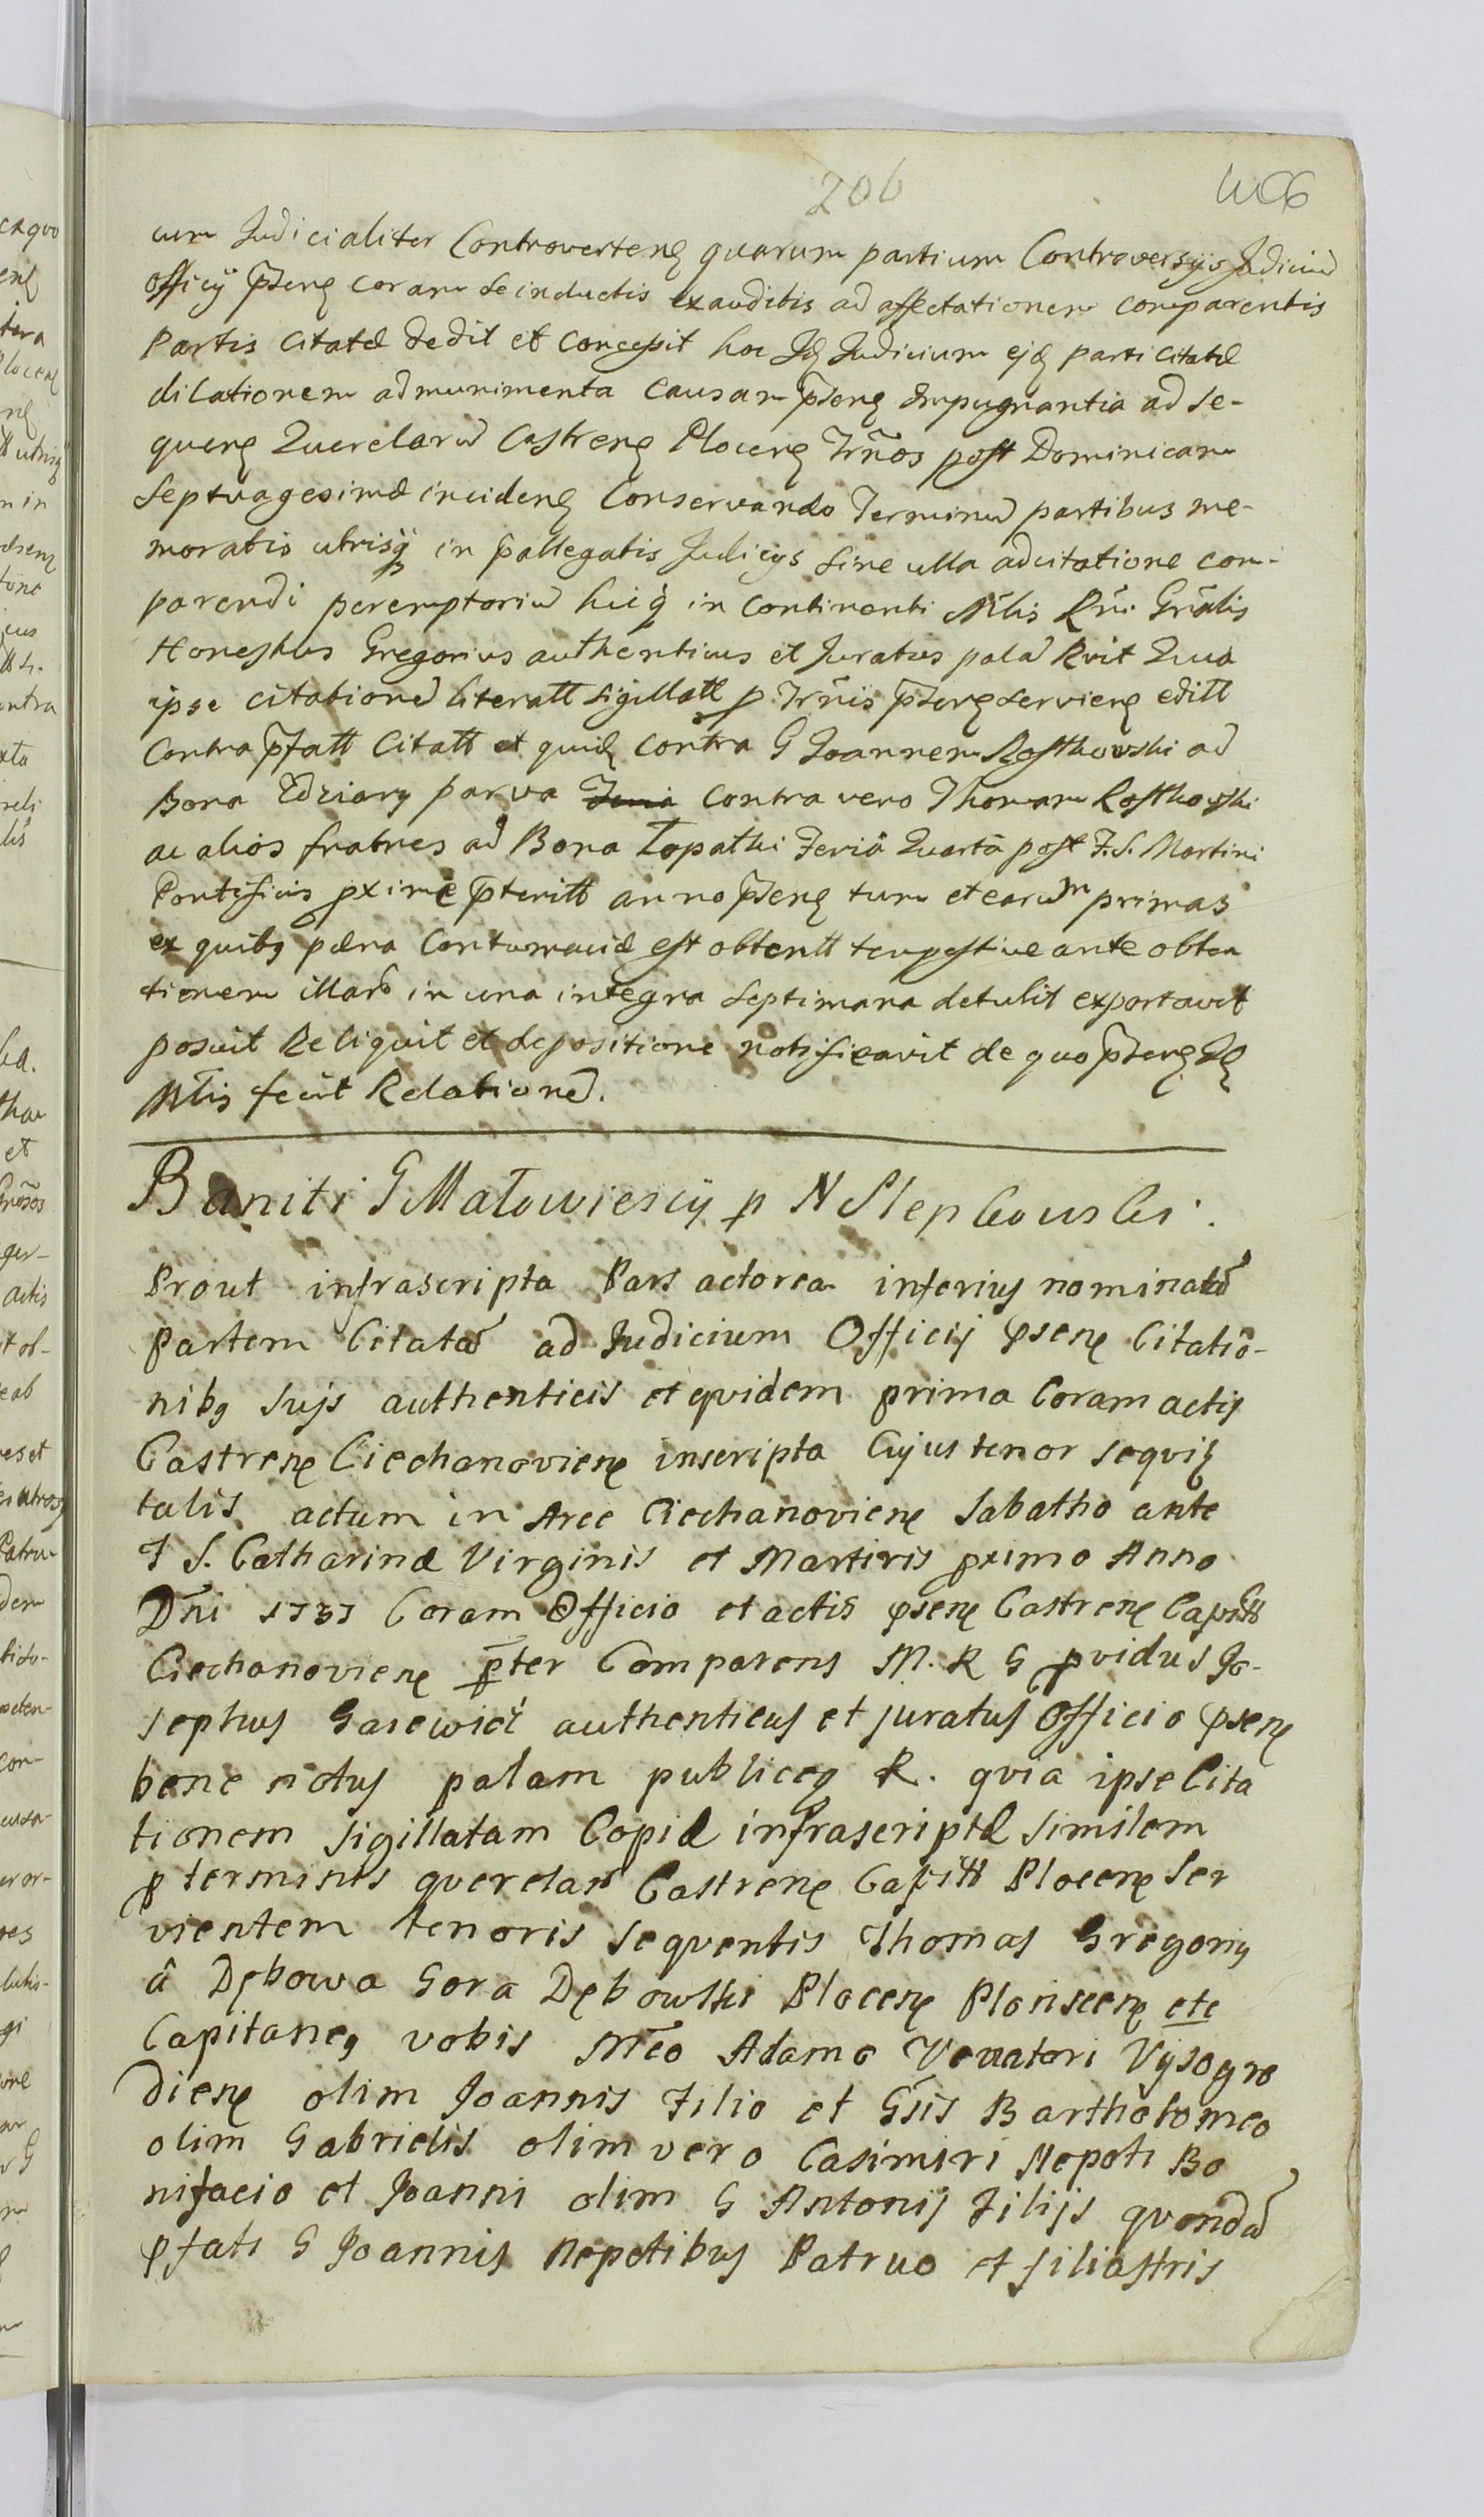 206
cum Judicialiter Controverteneɜ quarum partium Controversijs Judiciũ
officij p̃senꝫ coram se inductis exauditis ad affectationem comparentis
Partis Citatæ dedit et concessit hoc Idꝫ Judicium ejdꝫ parti Citatæ
dilationem ad munimenta causam p̃senꝫ impugnantia ad se-
quenꝫ Querelarũ Castrenꝫ Plocenꝫ Tr̃nos post Dominicam
Septuagesimæ incidenꝫ Conservando Terminũ partibus me-
moratis utrisqꝫ in p̃allegatis Judicijs sine ulla adcitatione com-
parendi peremptoriũ huicqꝫ in continenti M̃lis Rñi Gñalis
Honestus Gregorius authenticus et Juratus palã Rvit Quia
ipse citationẽ literatt sigillatt p Tr̃nis p̃senꝫ servienꝫ editt
Contra p̃fatt Citatt et quidꝫ contra G Joannem Rostkowski ad
Bona Zdziary parva contra vero Thomam Rostkowski
ac alios fratres ad Bona Łopatki Feriâ Quartâ post F. S. Martini
Pontificis pxime p̃teritt anno p̃senꝫ tum et earũm primas
ex quibꝫ pæna Contumaciæ est obtentt tempestive ante obten
tionem illarũ in una integra septimana detulit exportavit
posuit Reliquit et depositione notificavit de quo p̃senꝫ Idꝫ
M̃lis fecit Relationẽ.
Baniti G Małowiescij p N Slepkowski.
Prout infrascripta Pars actorea inferius nominatã
Partem Citatã ad Judicium Officij p̃senꝫ Citatio-
nibꝫ suis authenticis et quidem prima Coram actis
Castrenꝫ Ciechanovienꝫ inscripta Cujus tenor sequitꝫ
talis actum in Arce Ciechanovienꝫ Sabatho ante
F S. Catharinæ Virginis et Martiris pximo Anno
Dñi 1737 Coram Officio et actis p̃senꝫ Castrenꝫ Capitt
Ciechanovienꝫ p̃ter Comparens M. R G p̃vidus Jo-
sephus Gasewicz authenticus et juratus Officio p̃senꝫ
bene notus palam publiceqꝫ R. quia ipse Cita
tionem sigillatam Copiæ infrascriptæ similem
p terminis querelarũ Castrenꝫ Capitt Plocenꝫ Ser
vientem tenoris sequentis Thomas Gregorius
â Dębowa Gora Dębowski Plocenꝫ Plonscenꝫ etc
Capitaneꝫ vobis M̃co Adamo Venatori Vysogro
dienꝫ olim Joannis Filio et G̃sis Bartholomeo
olim Gabrielis olim vero Casimiri Nepoti Bo
nifacio et Joanni olim G Antonij Filijs quondã
p̃fati G Joannis Nepotibus Patruo et filiastris